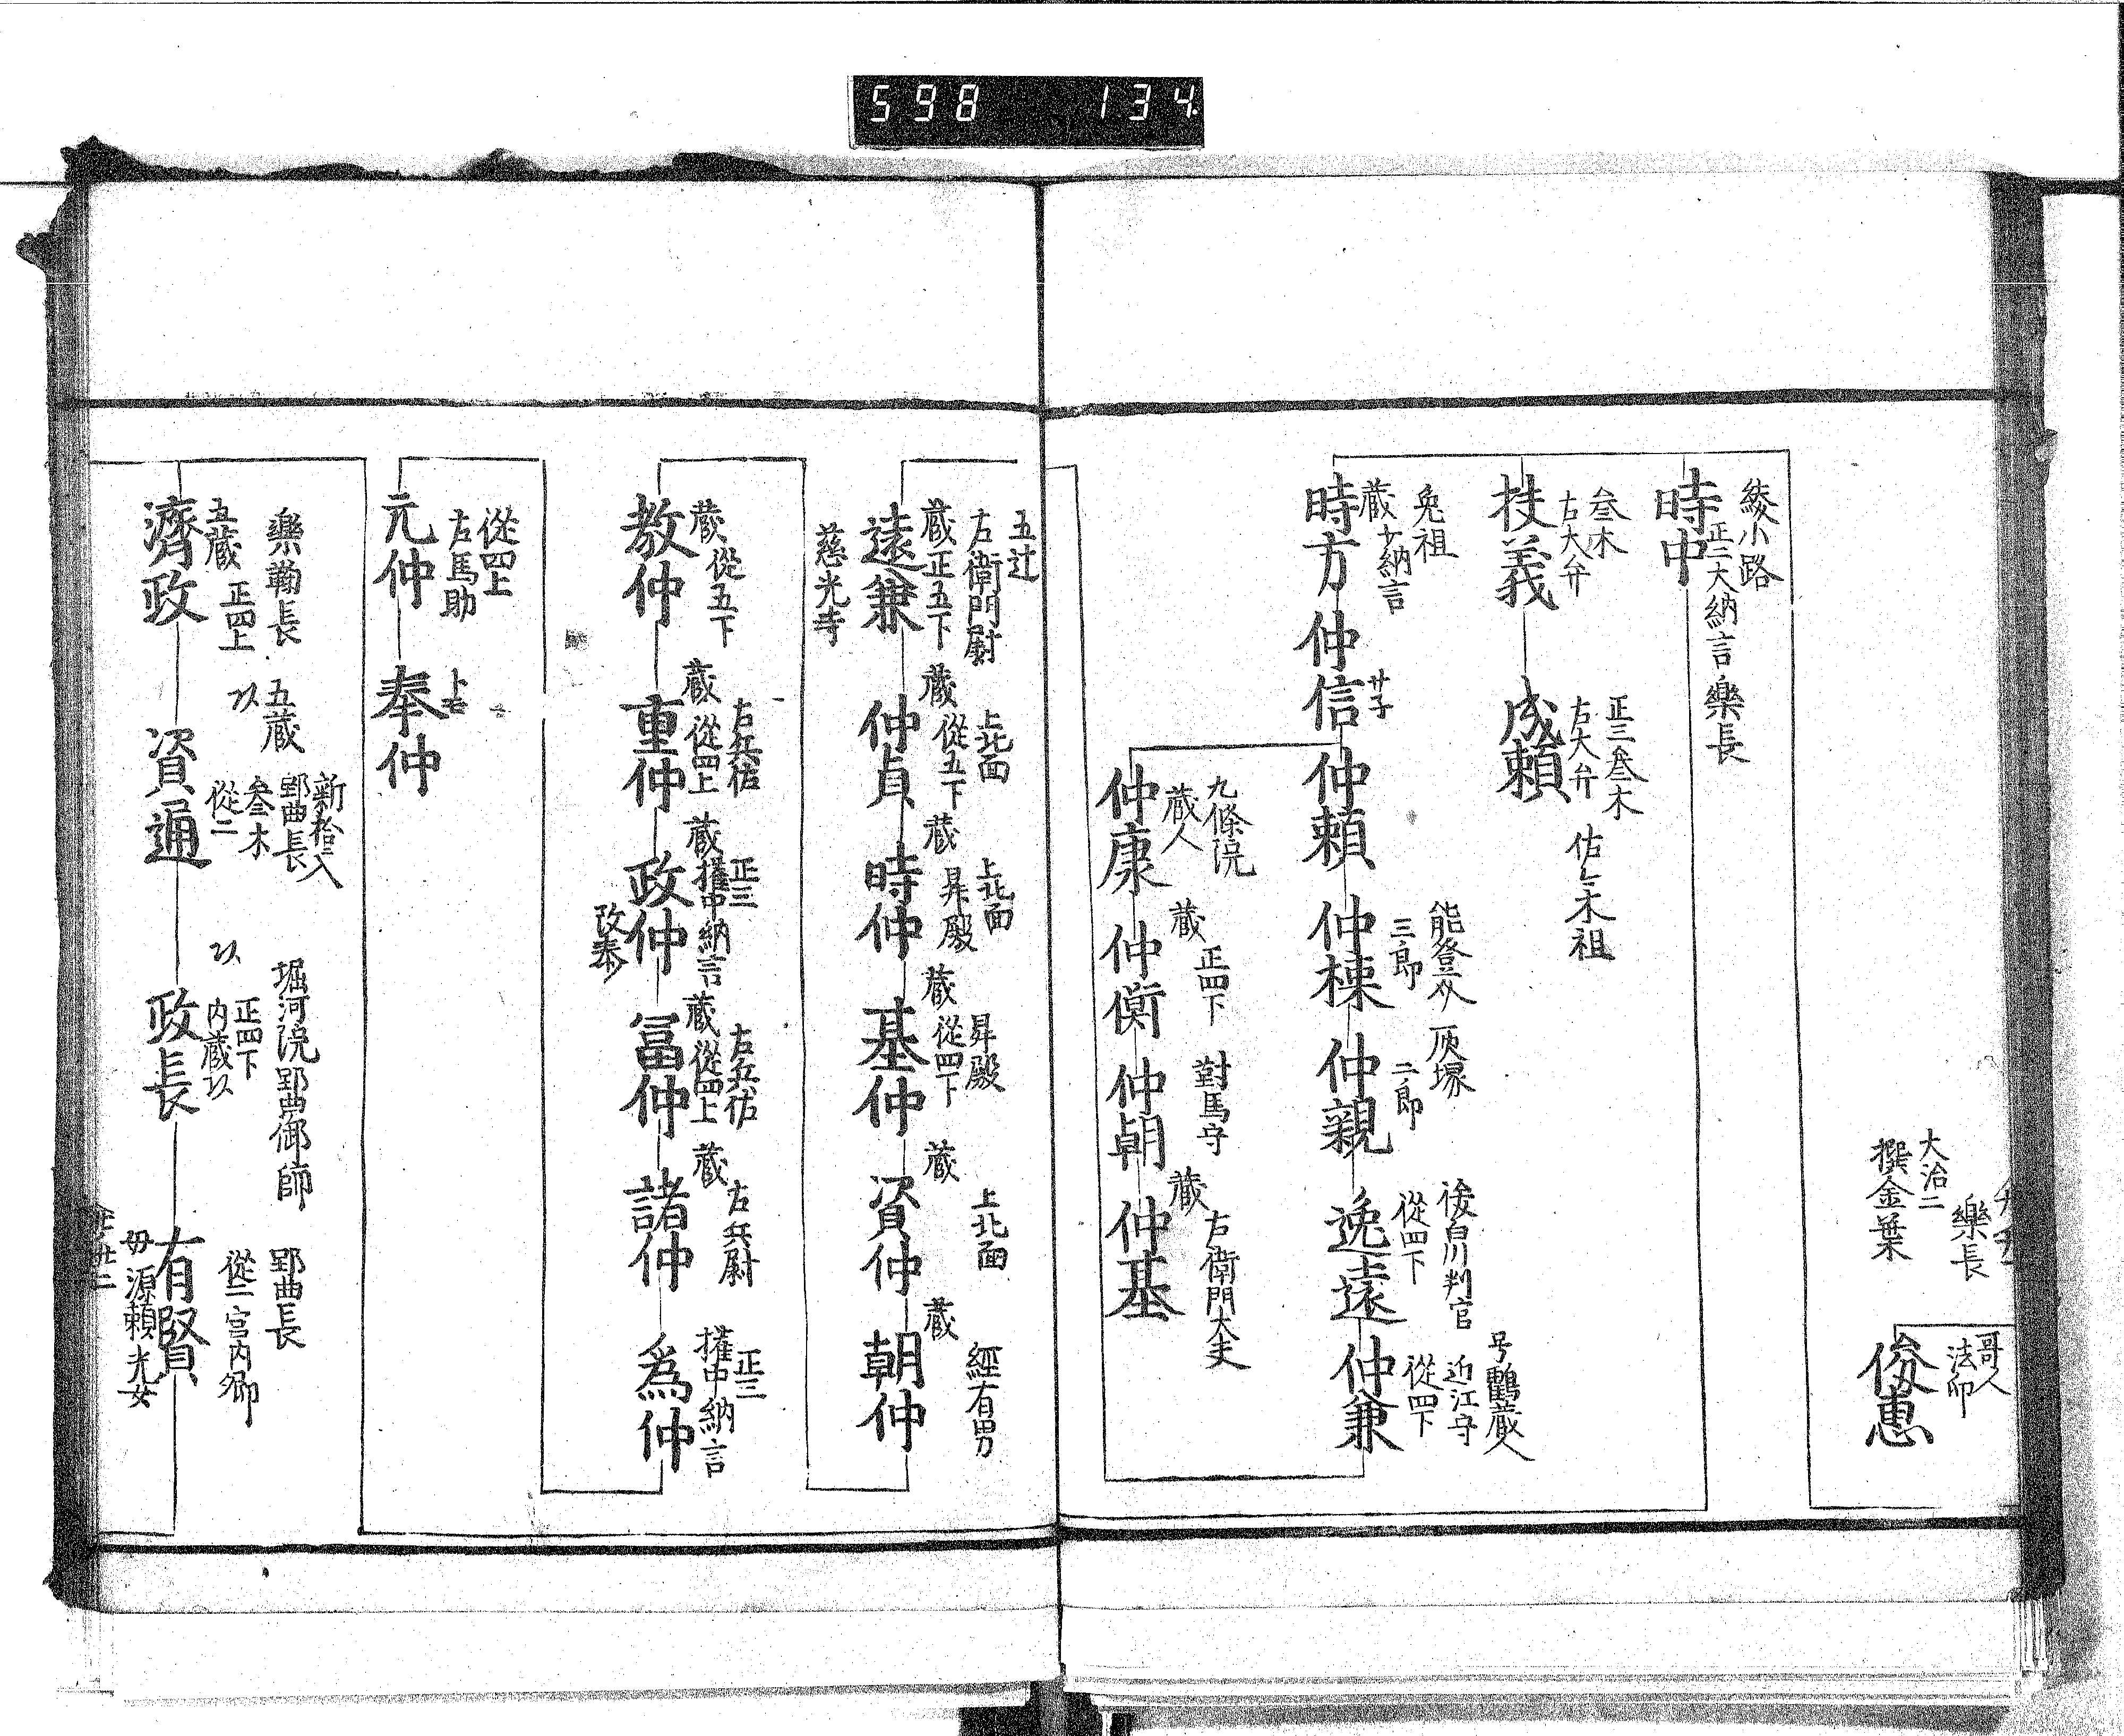 598 134
樂長
大治二
撰金葉
哥人
法印
俊惠
綾小路
時中
正二大納言 樂長
叁木
右大弁
扶義
正三叁木
右大弁
成頼
佐々木祖
蔵 少納言
時方
仲信
仲頼
能登介
三郎
仲棟
二郎
仲親
後白川判官
從四下
逸遠
号鸖蔵人
近江守
從四下
仲兼
九條院
蔵人
仲康
蔵 正四下
仲衡
對馬守
仲朝
蔵 右衛門大夫
仲基
五辻
右衛門尉
蔵 正五下
遠兼
慈光寺
上北面
蔵 從五下
仲貞
上北面
蔵 昇殿
時仲
昇殿
蔵 從四下
基仲
蔵 上北面
資仲
蔵 經有男
朝仲
蔵 從五下
教仲
右兵佐
蔵 從四上
重仲
正三
蔵 權中納言
政仲
改泰
右兵佐
蔵 從四上
冨仲
蔵 右兵尉
諸仲
正三
權中納言
為仲
從四上
右馬助
元仲
奉仲
樂鞠長
五蔵 正四上
濟政
五蔵
新拾入
郢曲長
叁木
從二
資通
堀河院郢曲御師
正四下
内蔵以
政長
郢曲長
從二宮内卿
有賢
母源頼光女